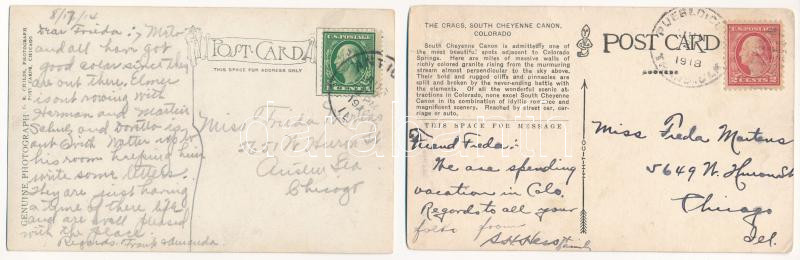 8/17/14
Dear Freida:
and all have got
good color since they
are out there. Elmer
is out rowing with
Herman and Martin
and
his room helping him
write some letters.
They are just having
a time of there life
and are well pleased
with the place.
Regards. Frank
GENUINE PHOTOGRAPH
C. R. CHILDS, PHOTOGRAPHER
POST CARDS, CHICAGO
POST-CARD
THIS SPACE FOR ADDRESS ONLY
U.S. POSTAGE
1 CENT 1
Miss Freda Martens
5651 W Huron St
Austin Sta
Chicago
THE CRAGS, SOUTH CHEYENNE CANON,
COLORADO
South Cheyenne Canon is admittedly one of
the most beautiful spots adjacent to Colorado
Springs. Here are miles of massive walls of
richly colored granite rising from the murmuring
stream almost perpendicular to the sky above.
Their bold and rugged cliffs and pinnacles are
split and broken by the never-ending battle with
the elements. Of all the wonderful scenic at-
tractions in Colorado, none excel South Cheyenne
Canon in its combination of idyllic romance and
magnificent scenery. Reached by street car, car-
riage or auto.
THIS SPACE FOR MESSAGE
Friend Freda:-
We are spending
vacation in Colo.
Regards to all your
folks from
POST CARD
ADDRESS
1918
U.S. POSTAGE
2 CENTS 2
Miss Freda Martens
5649 W. Huron St
Chicago
Ill.